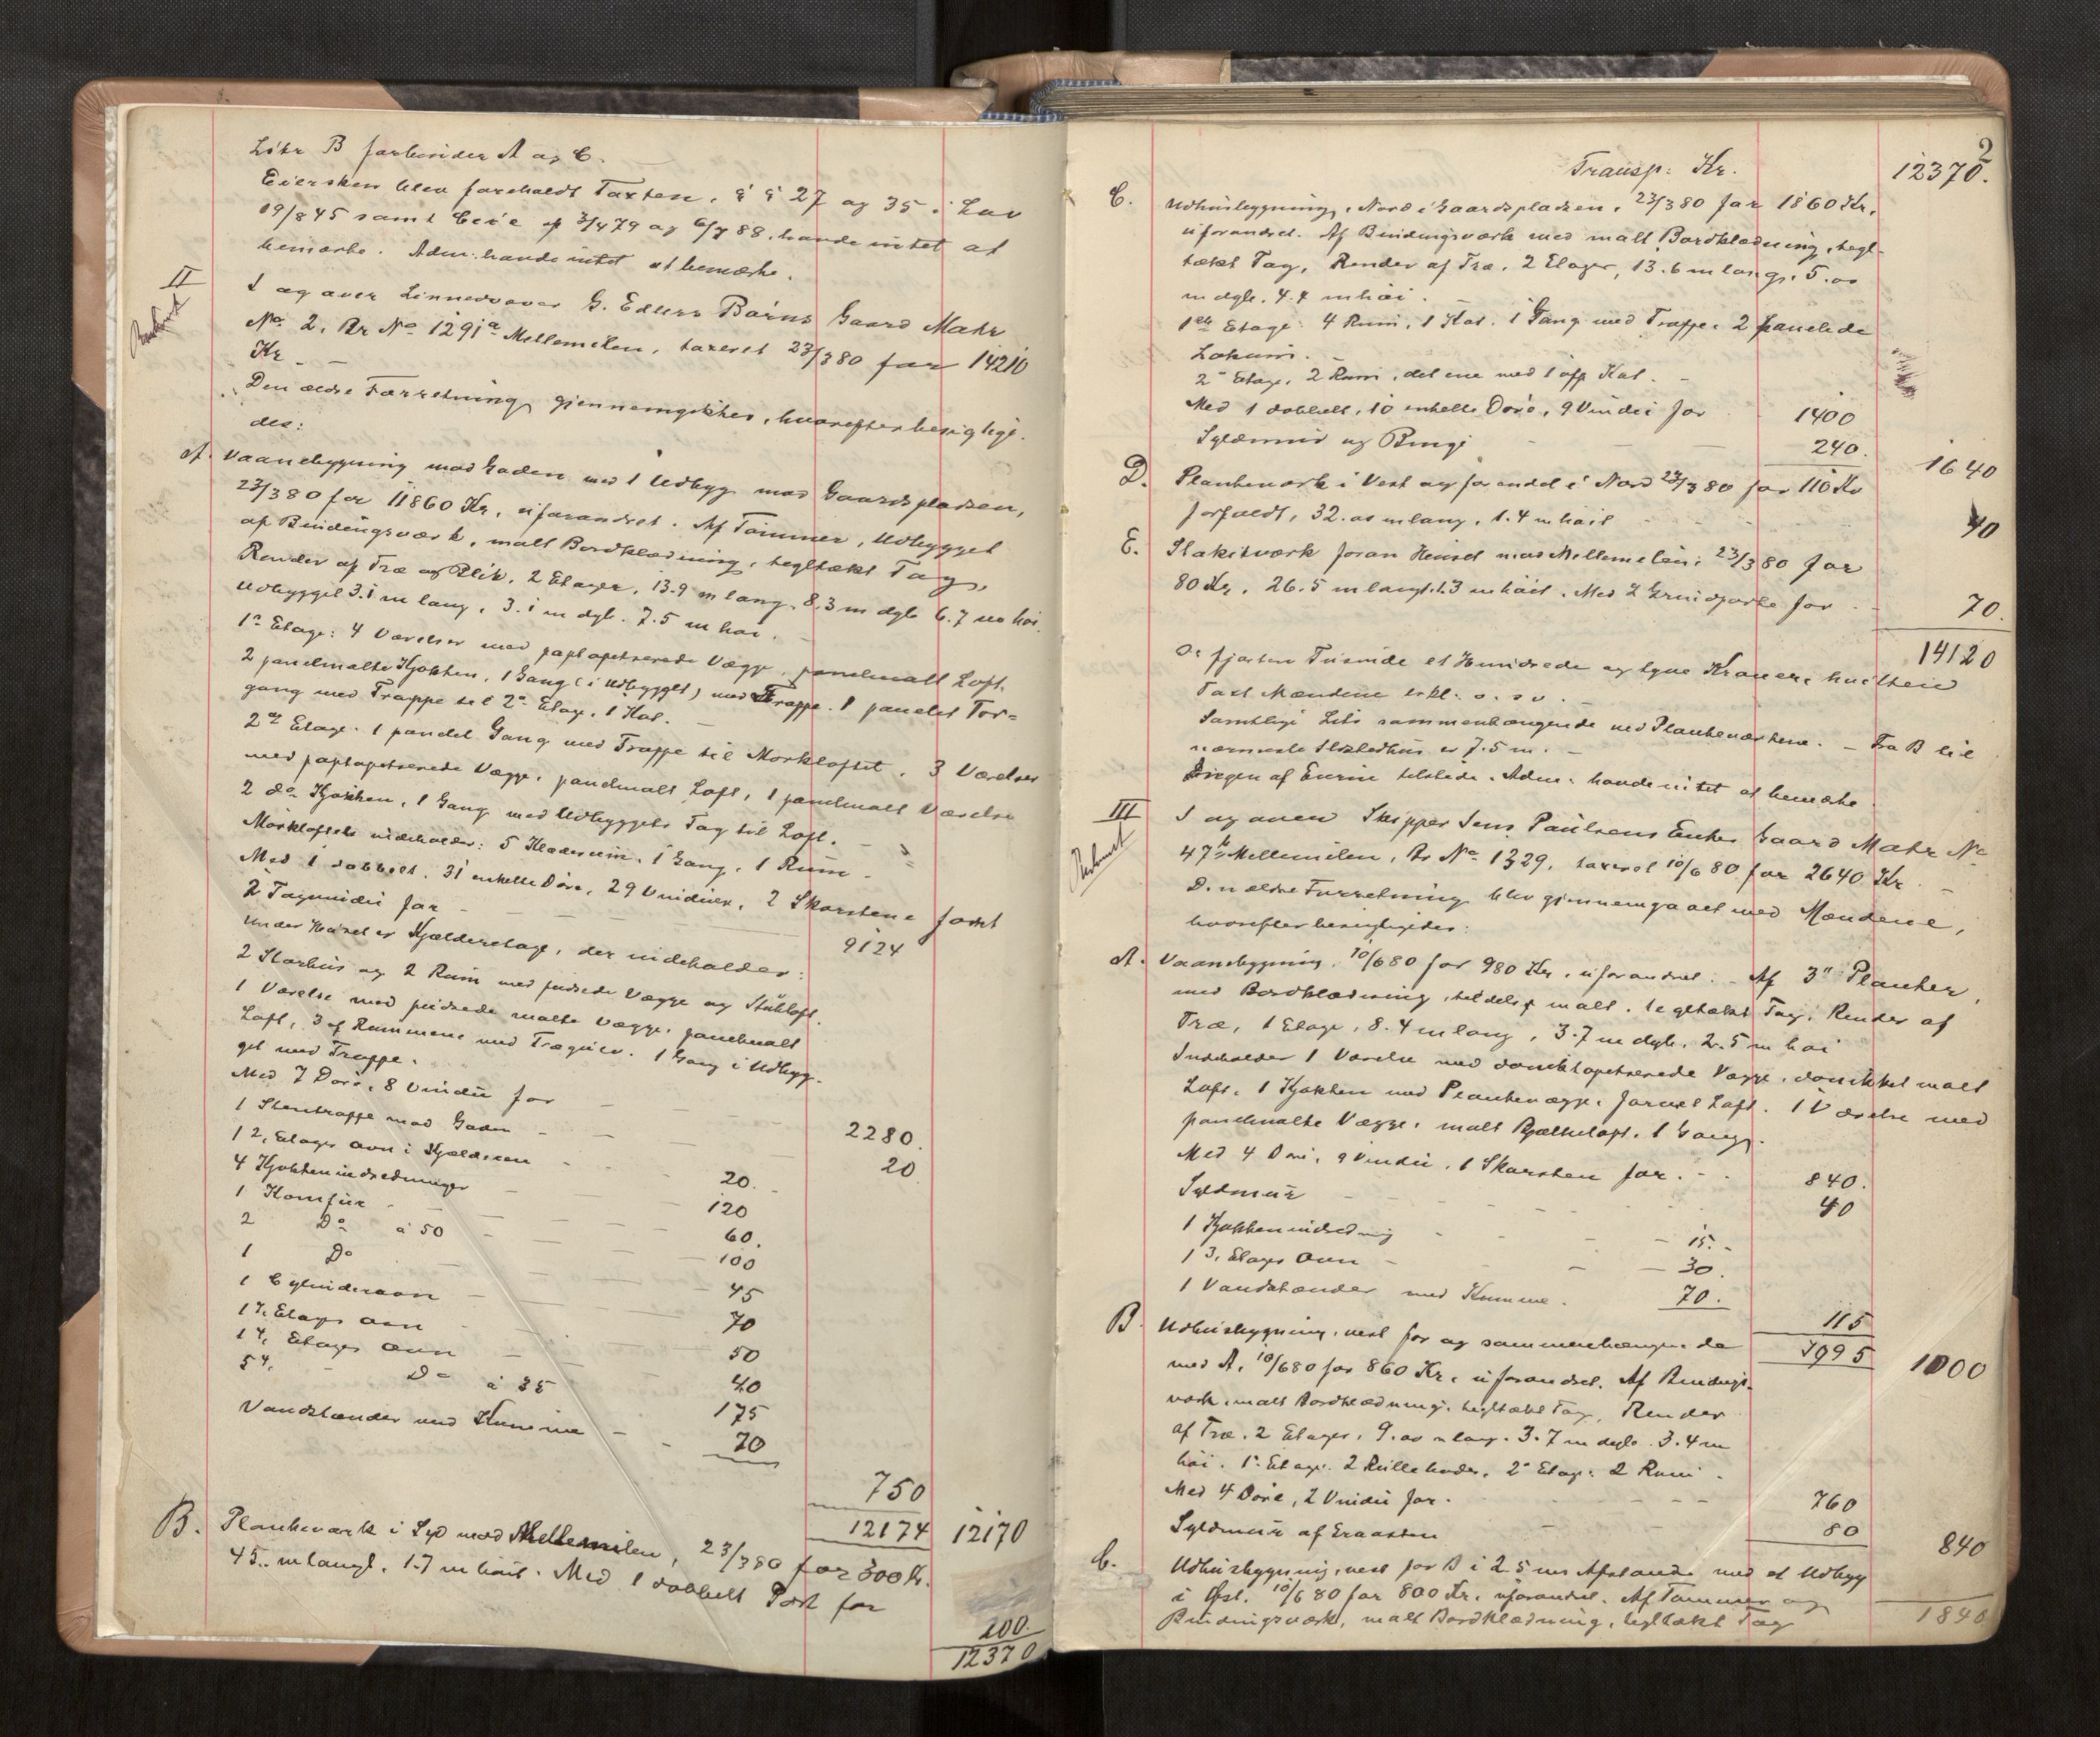 Litr B forbinder A og C.
Eiersken blev foreholdt Taxten, §§ 27 og 35 i Lov
19/8 45 samt Circ af 3/4 79 og 6/7 88, havde intet at
bemærke. Adm. havde intet at bemærke.
II
I og over Linnedvæver G. Edlers Børns Gaard Matr
No 2, Br No 1291a Mellemilen, taxeret 23/3 80 for 14210
Kr. —
Den ældre Forretning gjennemgikkes, hvorefter besigtige-
des:
A. Vaanebygning mod Gaden med 1 Udbyg mod Gaardspladsen,
23/3 80 for 11860 Kr, uforandret. Af Tømmer, Udbygget
af Bindingsværk, malt Bordklædning, tegltækt Tag,
Render af Træ og Blik, 2 Etager, 13.9 m lang, 8.3 m dyb 6.7 m høi.
Udbygget 3.1 m lang, 3.1 m dyb. 7.5 m høi.
1e Etage: 4 Værelser med paptapetserede Vægge, panelmalt Loft.
2 panelmalte Kjøkken, 1 Gang (i Udbygget) med Trappe. 1 panelet For-
gang med Trappe til 2e Etage, 1 Kot. —
2en Etage: 1 panelet Gang med Trappe til Mørkloftet. 3 Værelser
med paptapetserede Vægge, panelmalt Loft, 1 panelmalt Værelse
2 do Kjøkken, 1 Gang med Udbyggets Tag til Loft.
Mørkloftet indeholder: 5 Klæderum, 1 Gang, 1 Rum.
Med 1 dobbelt, 31 enkelte Døre, 29 Vinduer, 2 Skorstene samt
2 Tagvindu for — 9124
Under Huset er Kjælderetage, der indeholder:
2 Storhus og 2 Rum med pudsede Vægge og Stukloft.
1 Værelse med pudsede malte Vægge, panelmalt
Loft, 3 af Rummene med Trægulv. 1 Gang i Udbyg-
get med Trappe.
Med 7 Døre, 8 Vindu for — 2280.
1 Stentrappe mod Gaden — 20
1 2. Etages Ovn i Kjælderen — 20.
4 Kjøkkenindredninger — 120
1 Komfur — 60.
2 Do à 50 — 100
1 Do — 45
1 Cylinderovn — 70
1 7. Etages Ovn — 50
1 4. Etages Ovn — 40
5 4. Do à 35 — 175
Vandstænder med Kumme — 70
750
12174 12170
B. Plankeværk i Syd mod Mellemilen, 23/3 80 for 300 Kr.
45.. m langt, 1.7 m høit. Med 1 dobbelt Port for
200.
12370
2
Transp: Kr. 12370.
C. Udhusbygning, Nord i Gaardspladsen, 23/3 80 for 1860 Kr,
uforandret. Af Bindingsværk med malt Bordklædning, tegl-
tækt Tag, Render af Træ, 2 Etager, 13.6 m lang, 5.00
m dyb, 4.4 m høi.
1ste Etage: 4 Rum, 1 Kot, 1 Gang med Trappe, 2 panelede
Lokum.
2e Etage, 2 Rum, det ene med 1 Kot. —
Med 1 dobbelt, 10 enkelte Døre, 9 Vindu for 1400
Syldmur og — 240. 1640
D. Plankeværk i Vest og for endel i Nord 23/3 80 for 110 Kr
forfaldt, 32.00 m lang, 1.4 m høit — 40
E. Stakitværk foran Huset mod Mellemilen, 23/3 80 for
80 Kr, 26.5 m langt, 1.3 m høit. Med 2 Grindporte for 70.
14120
Er fjorten Tusinde et Hundrede og tyve Kroner, hvilken
Taxt Mændene erkl. o. s v. —
Samtlige Litr sammenhængende ved Plankeværkene. — Fra B til
nærmeste Ildstedhus er 7.5 m. —
Ingen af Eierne tilstede. Adm. havde intet at bemærke.
III
I og over Skipper Jens Paulsens Enkes Gaard Matr No
47 Mellemilen, Br No 1329, taxeret 10/6 80 for 2640 Kr. —
Den ældre Forretning blev gjennemgaaet med Mændene,
hvorefter besigtigedes:
A. Vaanebygning, 10/6 80 for 980 Kr, uforandret. Af 3" Planker,
med Bordklædning, tildels malt, tegltækt Tag, Render af
Træ, 1 Etage, 8.4 m lang, 3.7 m dyb, 2.5 m høi
Indeholder 1 Værelse med tapetserede Vægge, malt
Loft, 1 Kjøkken med Plankevægge, Loft. 1 Værelse med
panelmalte Vægge, malt Bjælkeloft, 1 Gang.
Med 4 Døre, 9 Vindu, 1 Skorsten for — 840.
Syldmur — 40
1 Kjøkkenindredning — 15.
1 3. Etages Ovn — 30.
1 Vandstænder med Kumme. 70.
115
995 1000
B. Udhusbygning, vest for og sammenhængende
med A, 10/6 80 for 860 Kr, uforandret. Af Bindings-
værk, malt Bordklædning, tegltækt Tag, Render
af Træ, 2 Etager, 9.00 m lang, 3.7 m dyb. 3.4 m
høi. 1e Etage: 2 Rulleboder, 2e Etage: 2 Rum.
Med 4 Døre, 2 Vindu for — 760
Syldmur af Graasten — 80 840
C. Udhusbygning, vest for B i 2.5 m Afstand med et Udbyg
i Øst, 10/6 80 for 800 Kr, uforandret. Af Tømmer og
Bindingsværk, malt Bordklædning, tegltækt Tag 1840